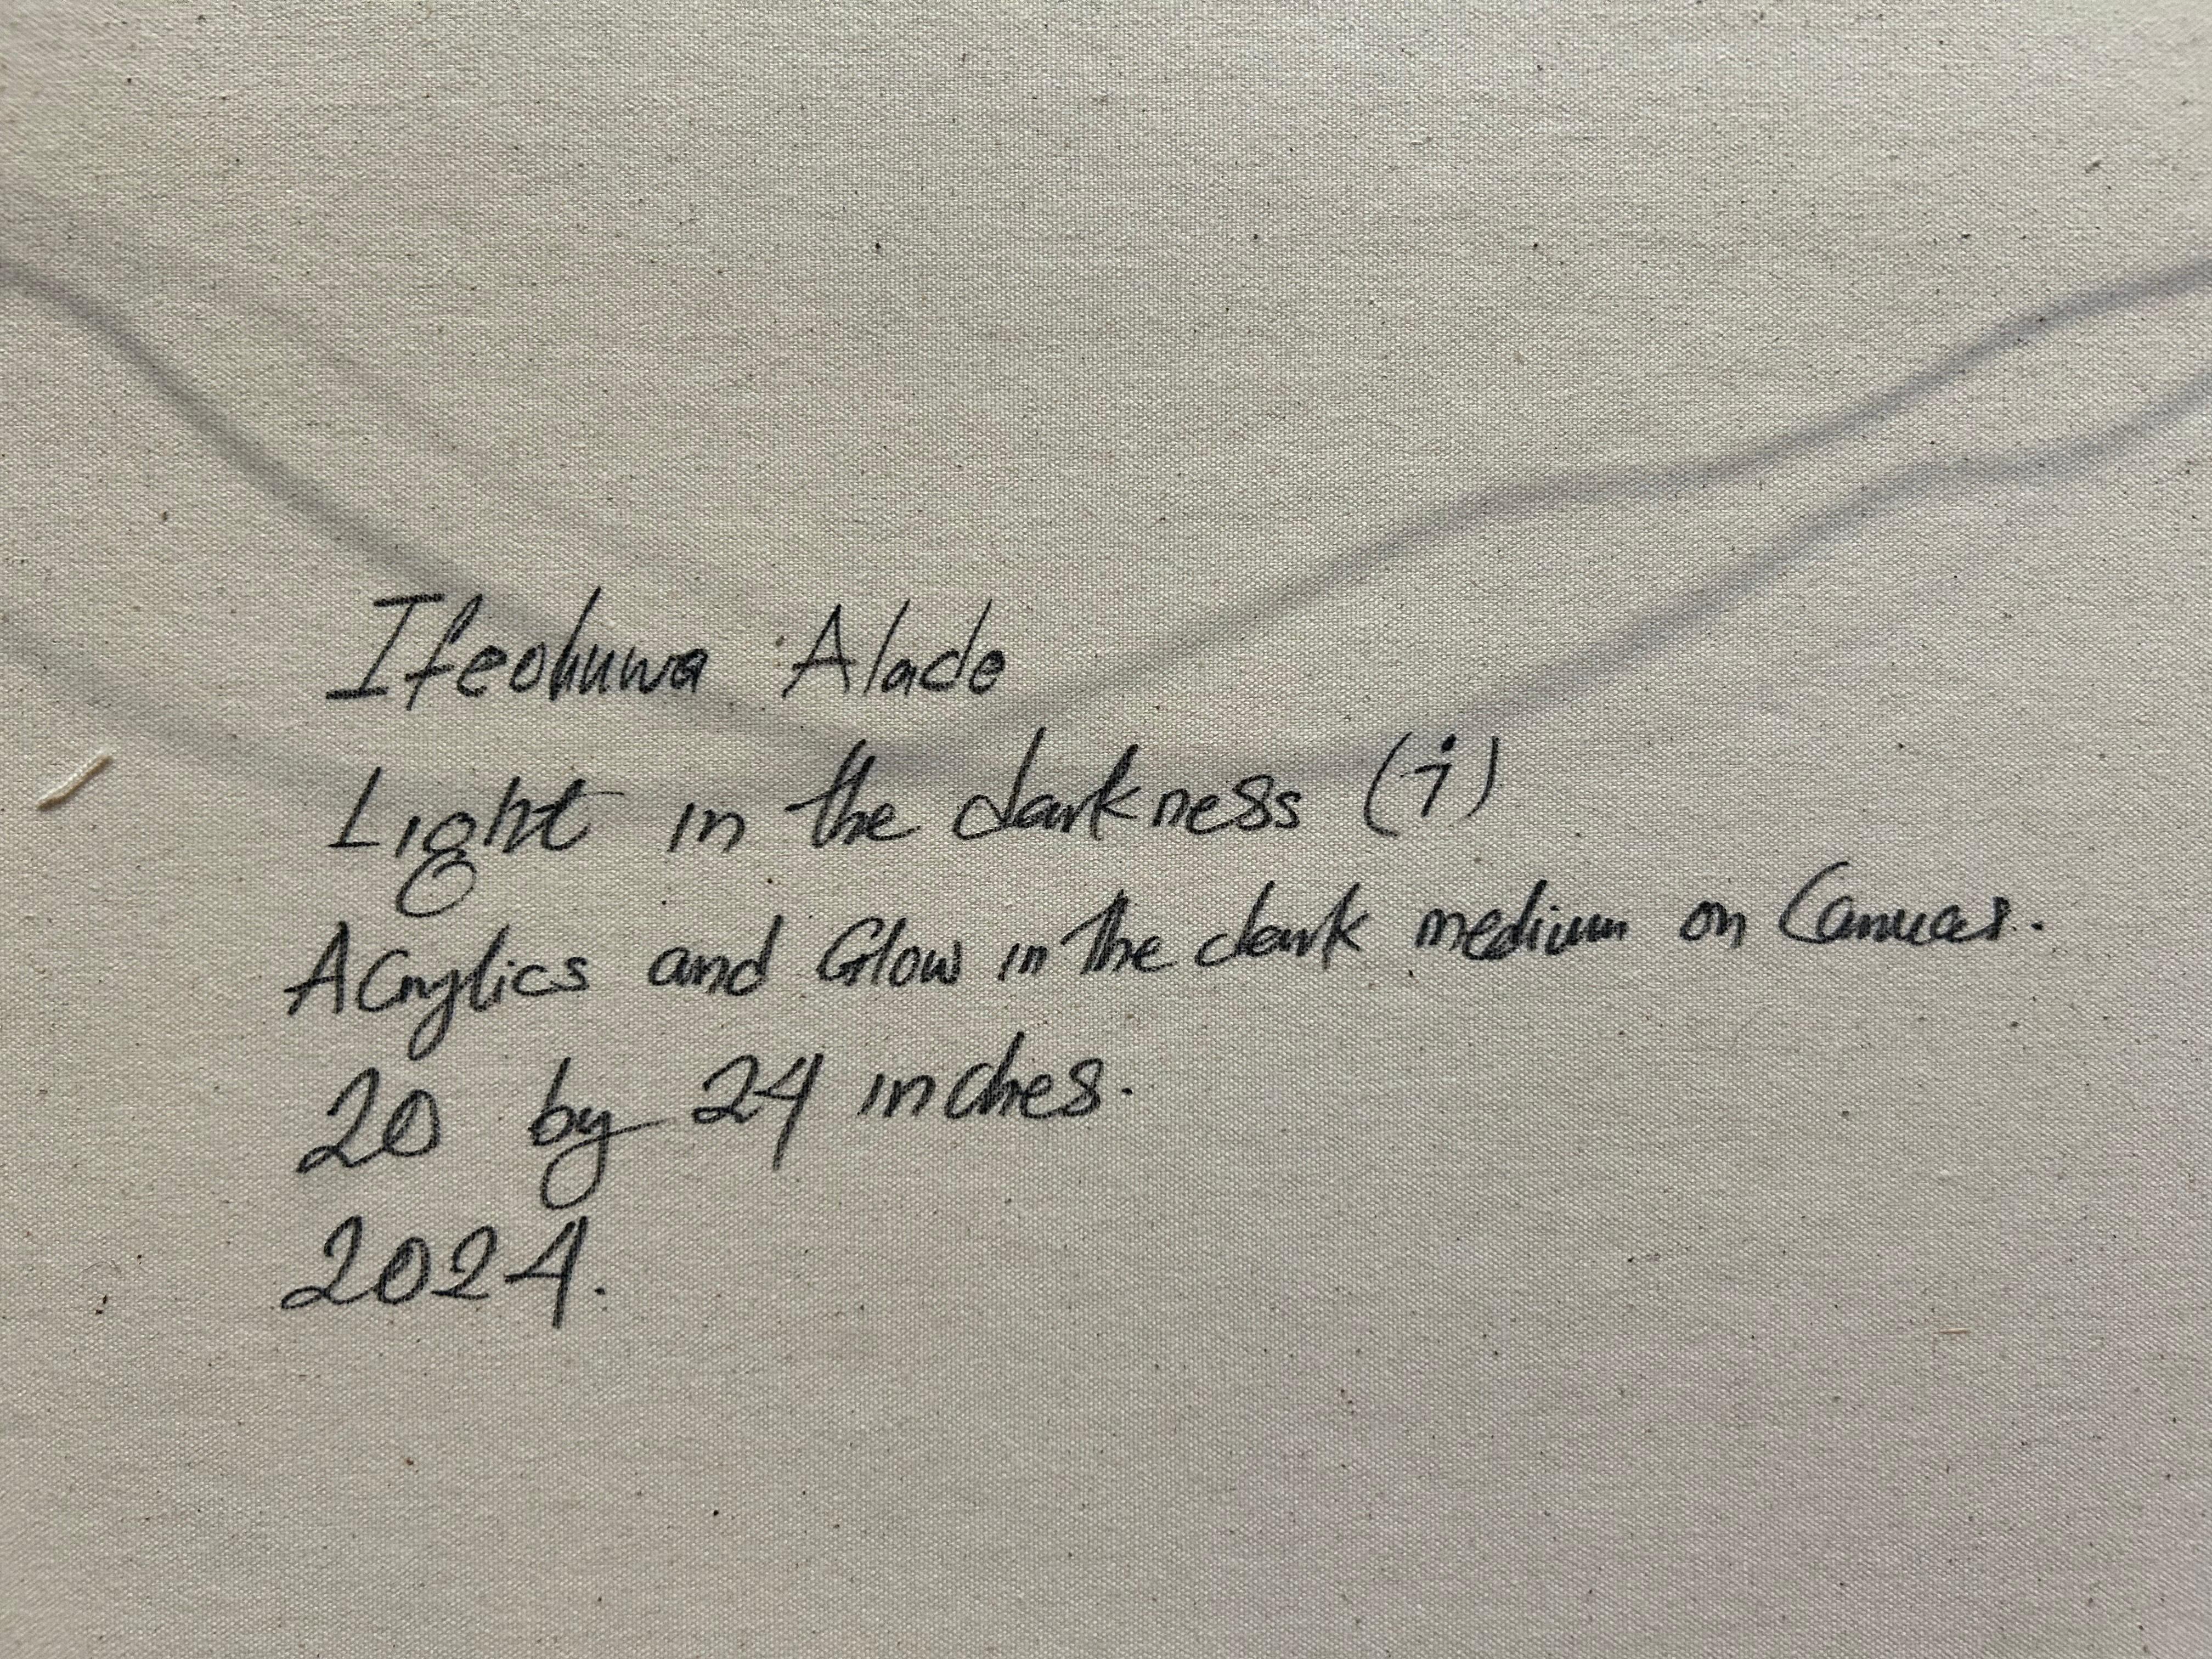 Ifeoluwa Alade
Light in the darkness (i)
Acrylics and Glow in the dark medium on Canvas.
20 by 24 inches.
2024.